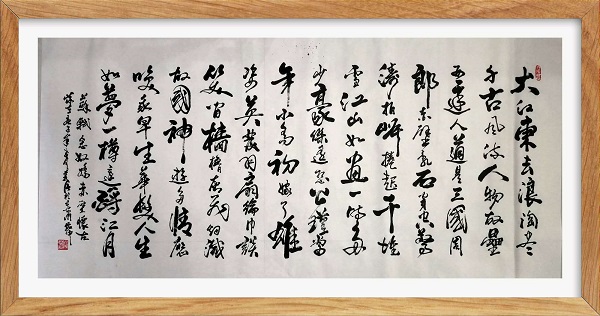 大江東去浪淘尽
千古風流人物故壘
西邊人道是三國周
郎赤壁亂石驚
濤拍岸捲起千堆
雪江山如畫一時多
少豪傑遙想公瑾當
年小喬初嫁了雄
姿英發羽扇綸巾談
笑間檣櫓灰飛烟滅
故國神遊多情應
笑我早生華髮人生
如夢一樽還酹江月
蘇軾念奴嬌赤壁懷古